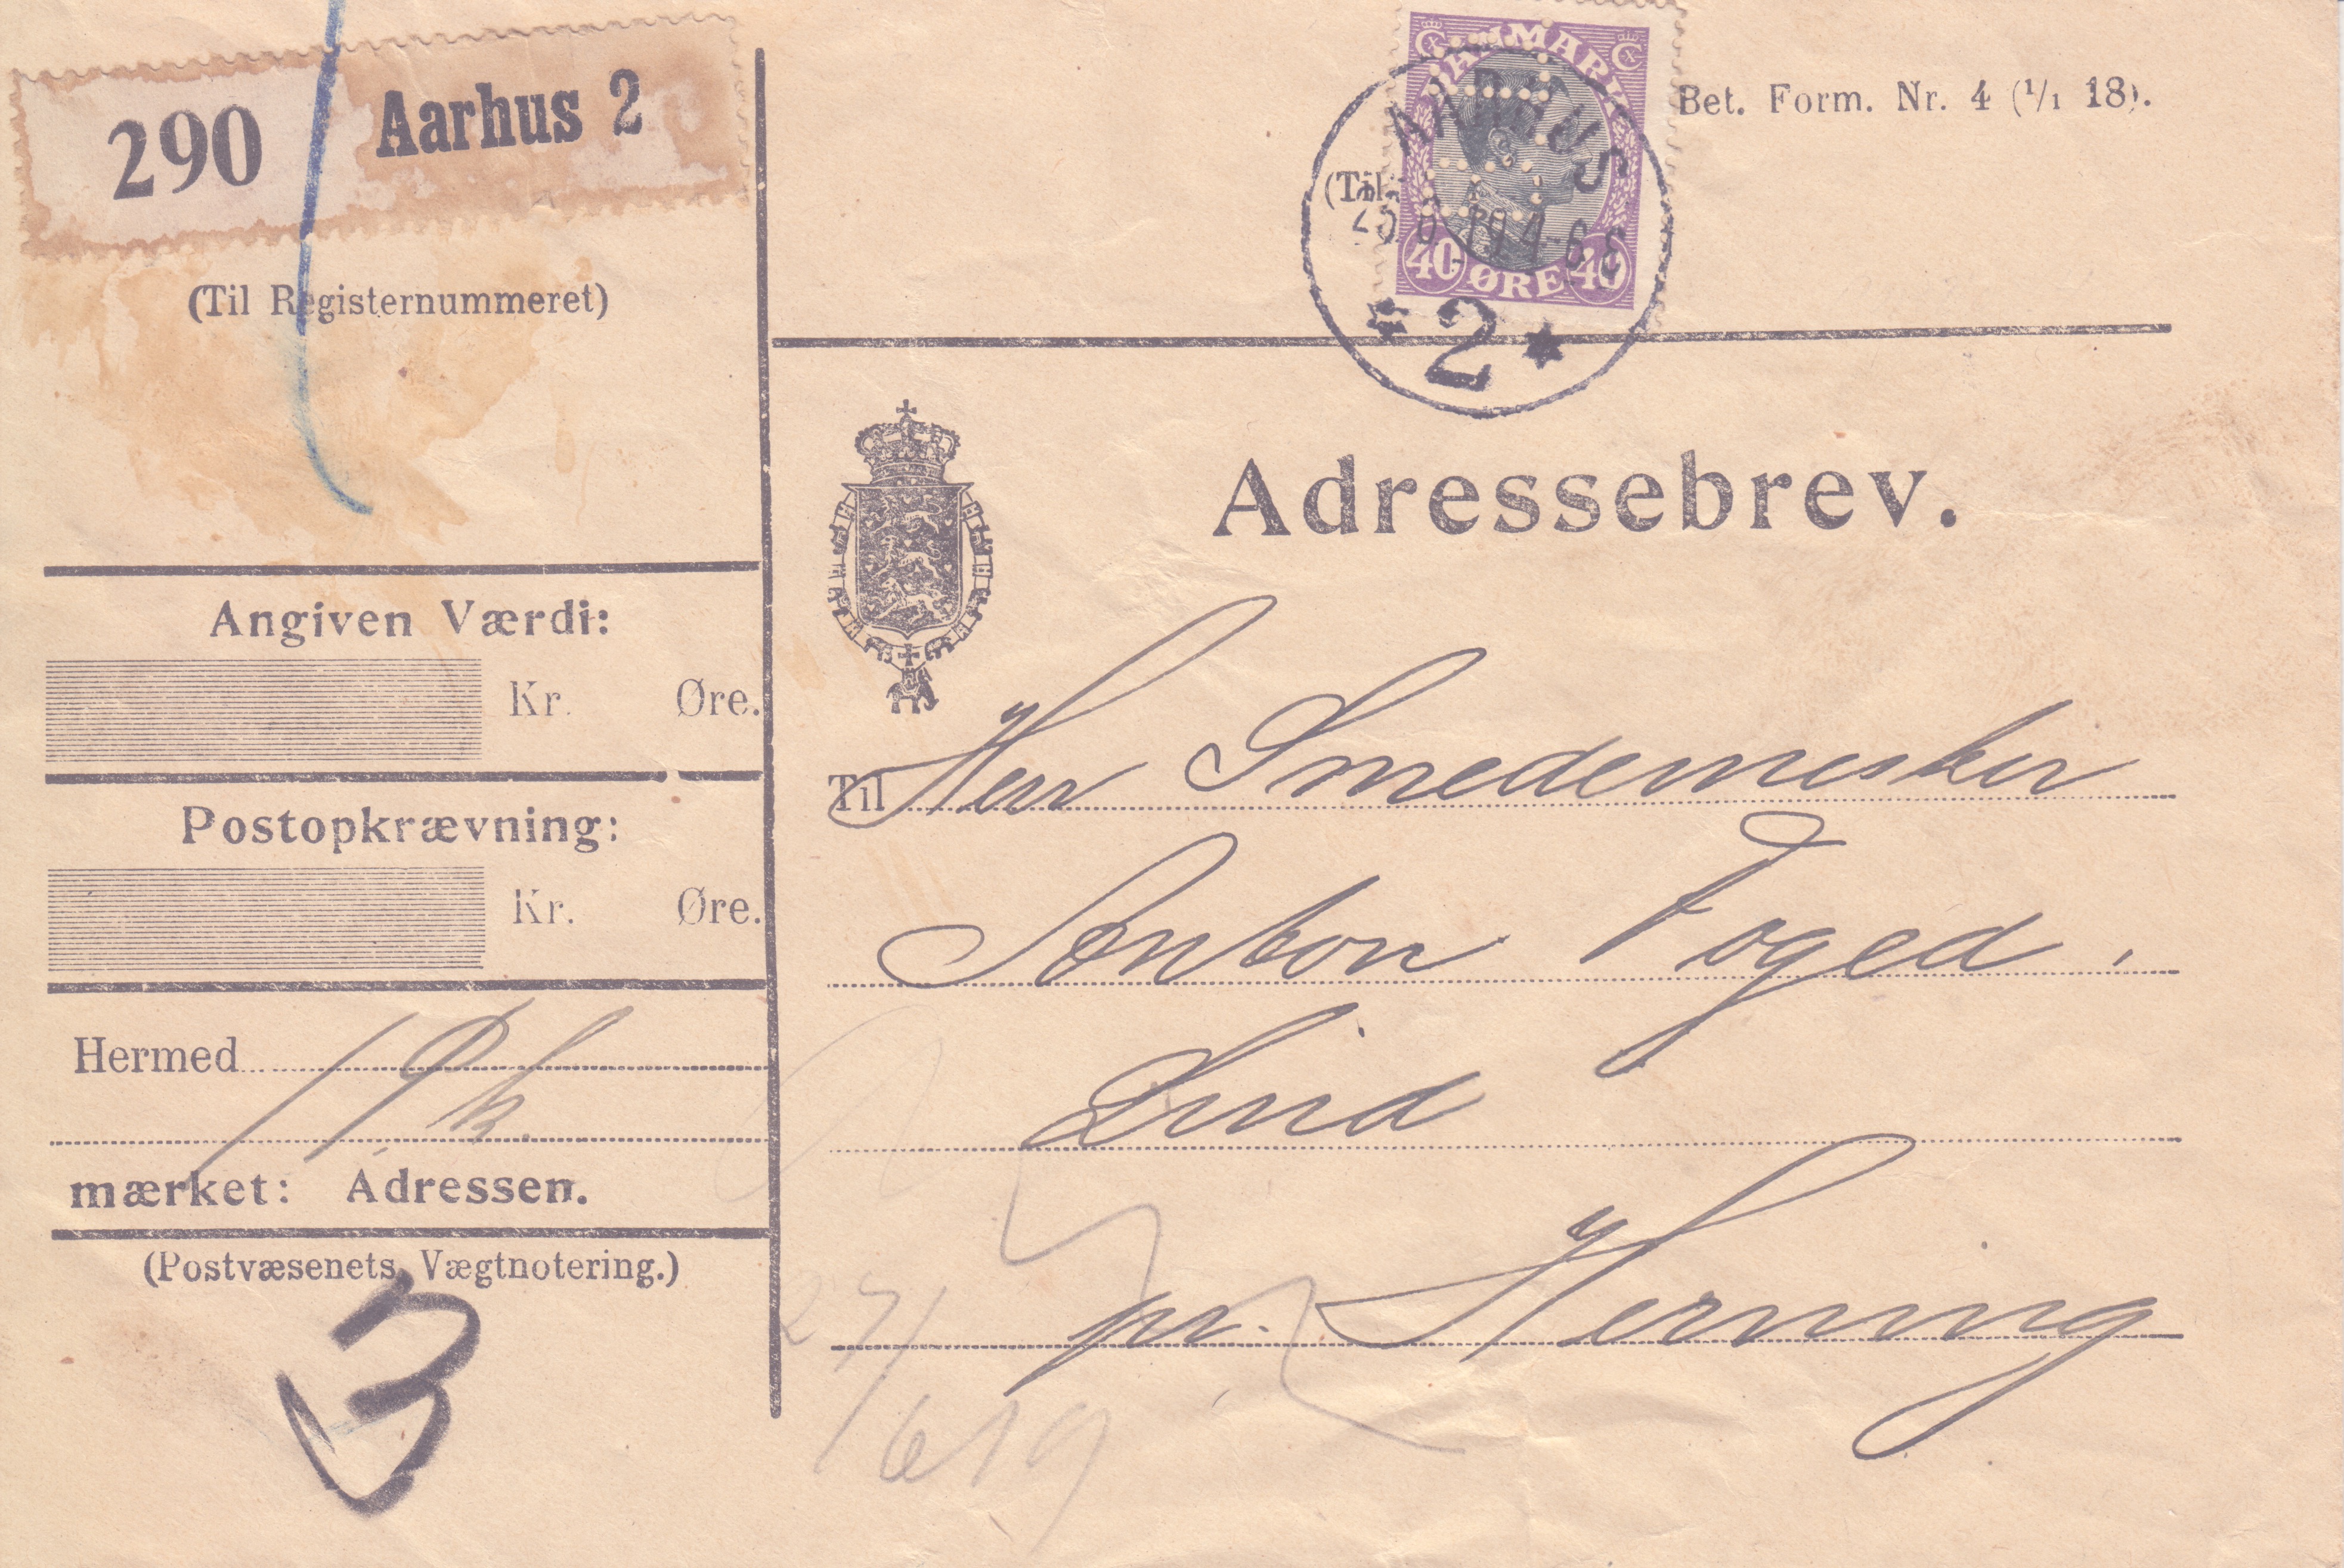 290 Aarhus 2
(Til Registernummeret)
Angiven Værdi:
Kr. Øre.
Postopkrævning:
Kr. Øre.
Hermed 1 Pk.
mærket: Adressen.
(Postvæsenets Vægtnotering.)
3
DANMARK
40 ØRE 40
AARHUS
6.19 4-6 E
* 2 *
(Til
Bet. Form. Nr. 4 (1/1 18).
Adressebrev.
Til Herr Smedemester
Anton Foged.
Lind
pr. Herning
27/
6 19